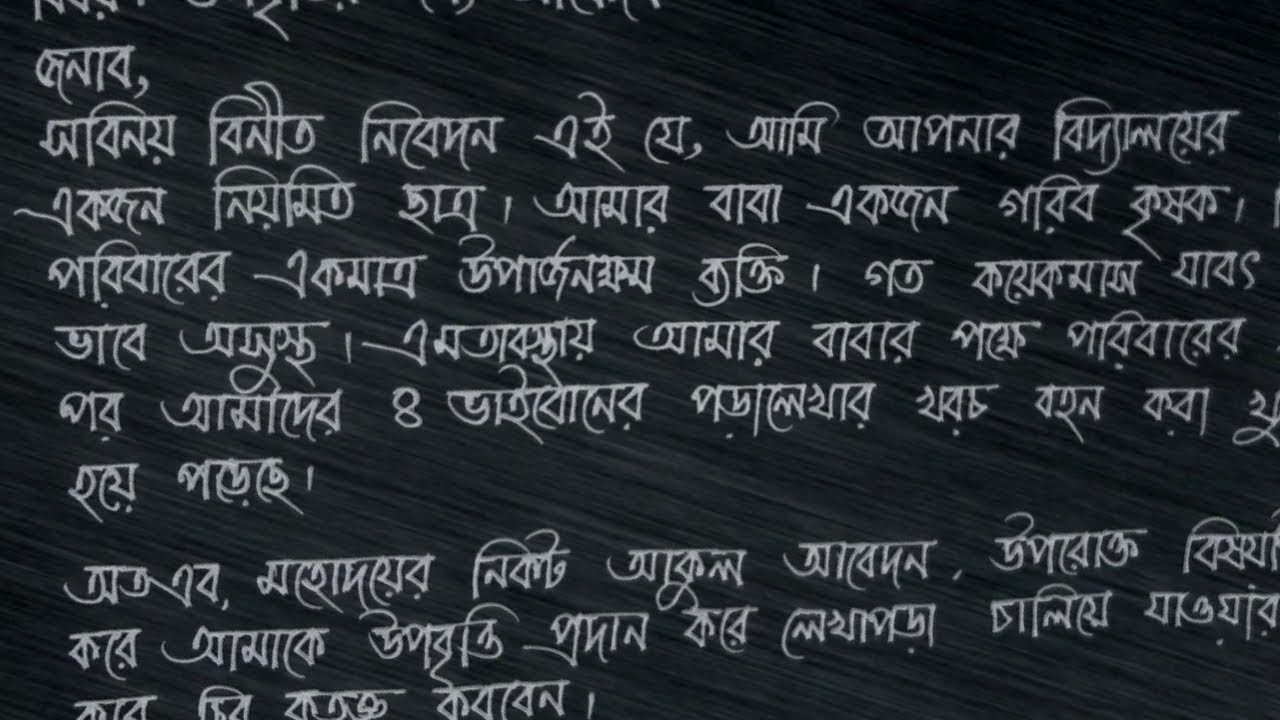 জনাব,
সবিনয় বিনীত নিবেদন এই যে, আমি আপনার বিদ্যালয়ের
একজন নিয়মিত ছাত্র। আমার বাবা একজন গরিব কৃষক।
পরিবারের একমাত্র উপার্জনক্ষম ব্যক্তি। গত কয়েকমাস যাবৎ
ভাবে অসুস্থ। এমতাবস্থায় আমার বাবার পক্ষে পরিবারের
পর আমাদের ৪ ভাইবোনের পড়ালেখার খরচ বহন করা
হয়ে পড়েছে।
অতএব, মহোদয়ের নিকট আকুল আবেদন, উপরোক্ত
করে আমাকে উপবৃত্তি প্রদান করে লেখাপড়া চালিয়ে যাওয়ার
করে চির কৃতজ্ঞ করবেন।